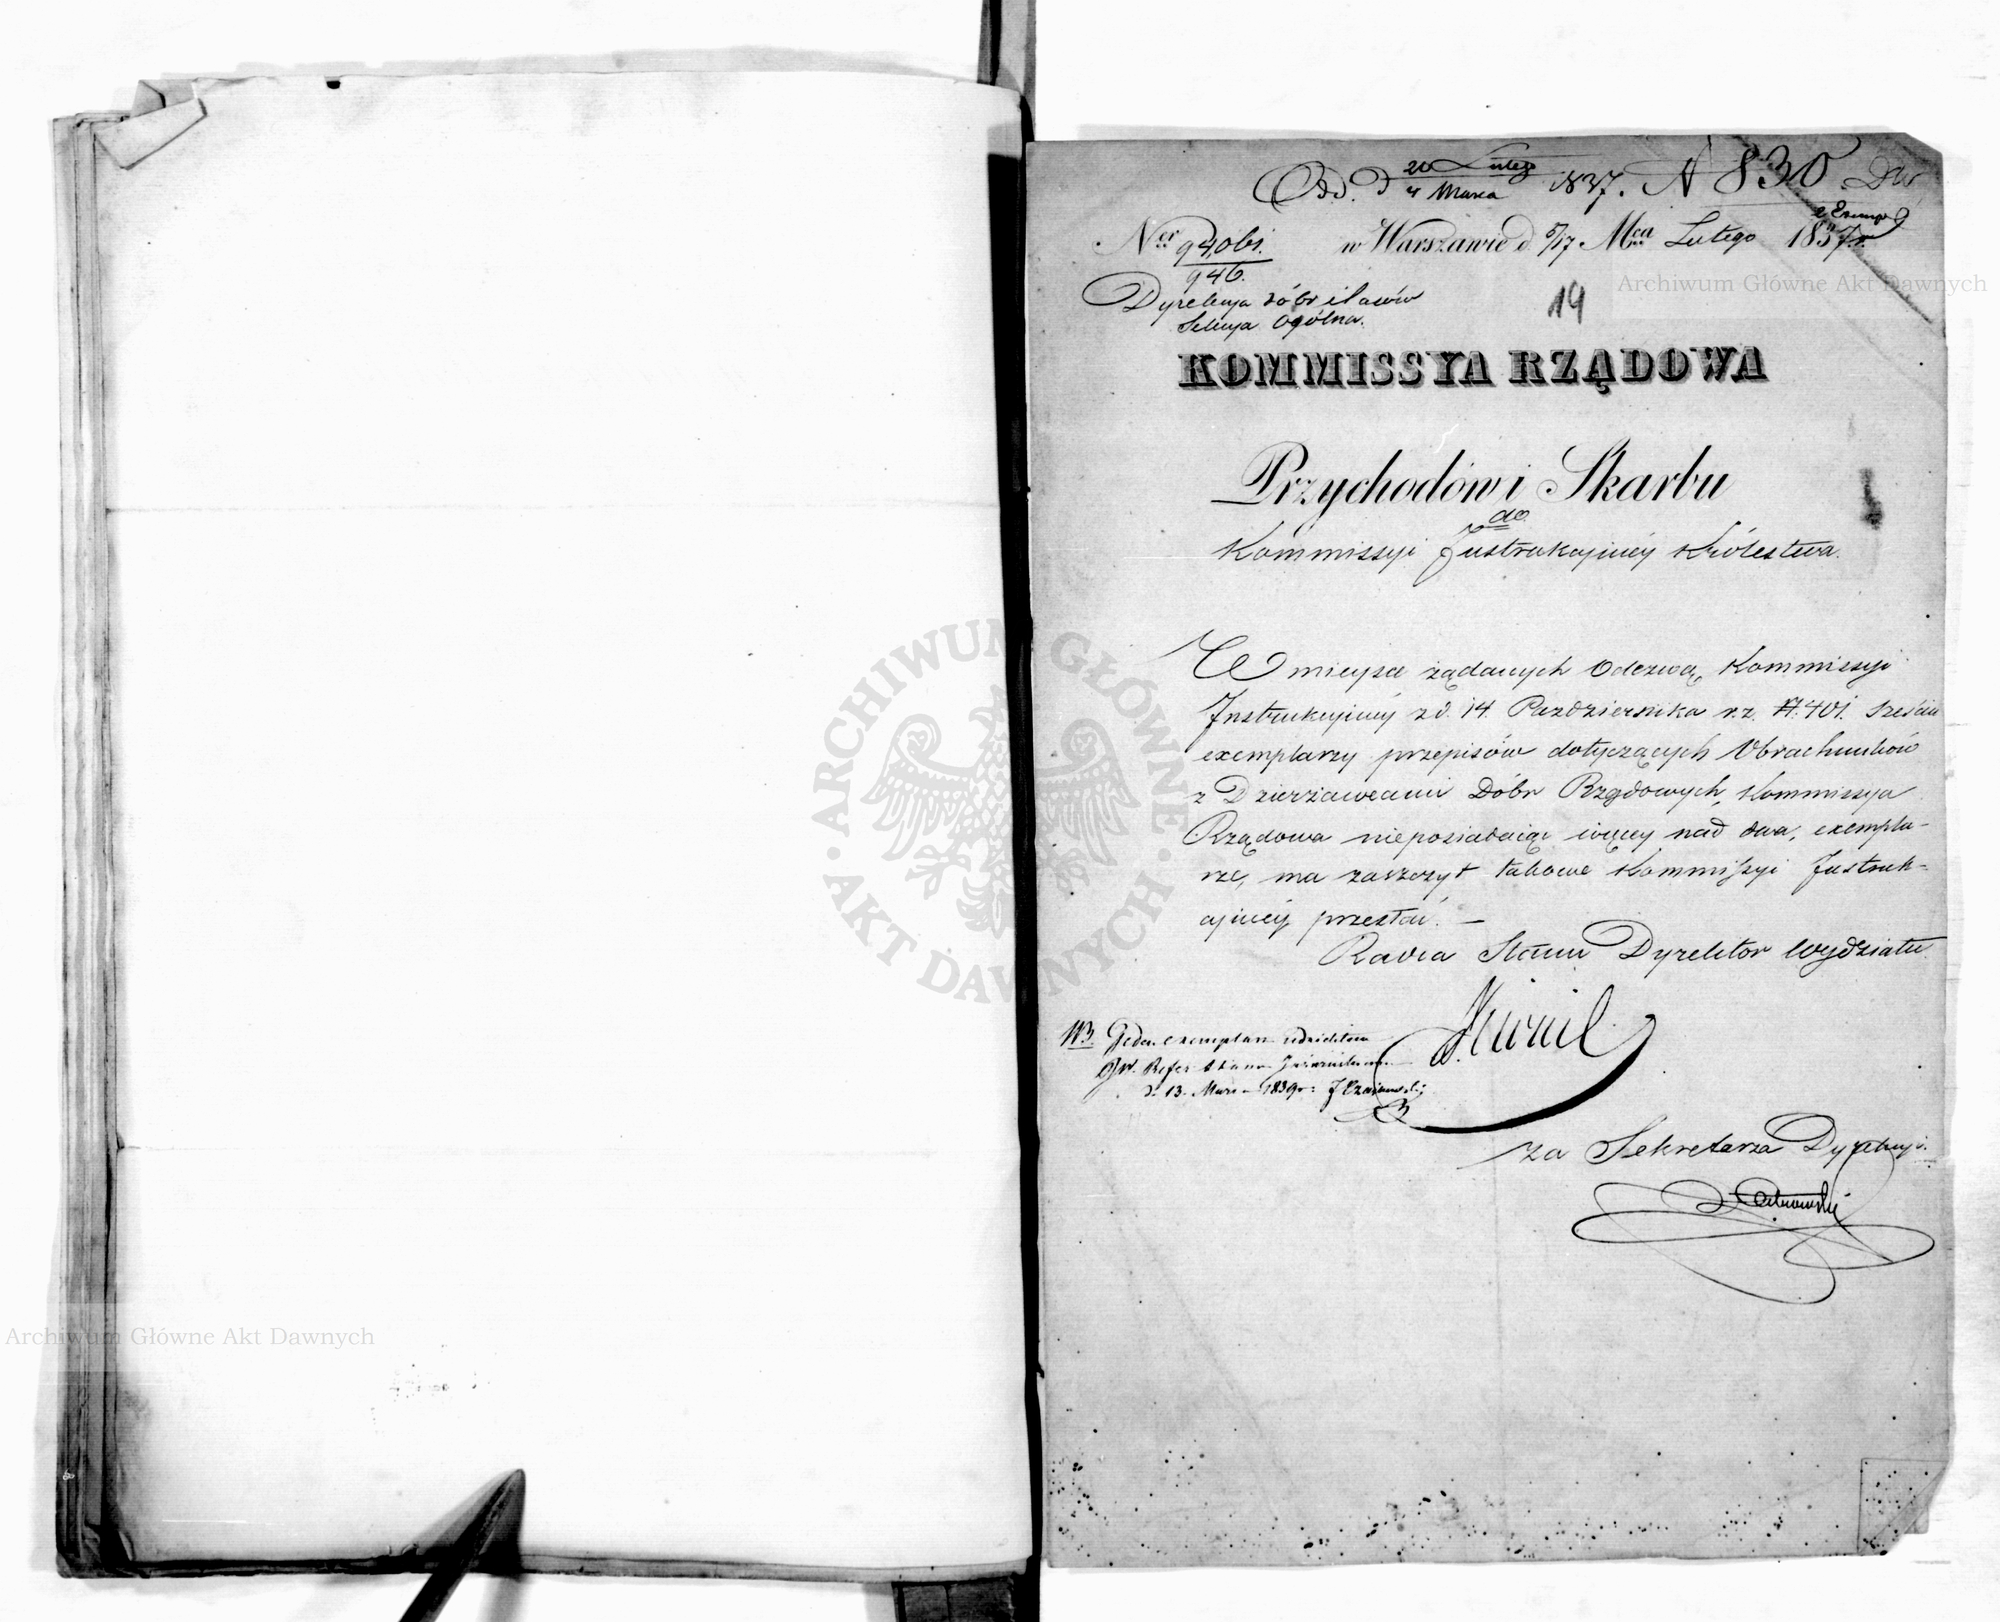 Od. d 20 Lutego / 4 Marca 1837. N 830
2 Exemp
Ner 94,061. / 946. w Warszawie d 5/17 Mca Lutego 1837 r.
Dyrekcya dóbr i lasów
Sekcya Ogólna.
19
KOMMISSYA RZĄDOWA
Przychodów i Skarbu
do
Kommissyi Instrukcyinéy Królestwa.
W mieysce żądanych Odezwą Kommissyi
Instrukcyinéy z d. 14. Października r. z. N. 401. sześciu
exemplarzy przepisów dotyczących Obrachunków
z Dzierżawcami Dóbr Rządowych, Kommissya
Rządowa nieposiadaiąc więcey nad dwa, exempla-
rze, ma zaszczyt takowe Kommissyi Instruk-
cyinéy przesłać. —
Radca Stanu Dyrektor Wydziału
NB. Jeden exemplarz udzieliłem
JW. Refer. Stanu
d. 13. Marca 1839 r:
za Sekretarza Dyrekcyi.
ARCHIWUM GŁÓWNE
AKT DAWNYCH
Archiwum Główne Akt Dawnych
Archiwum Główne Akt Dawnych